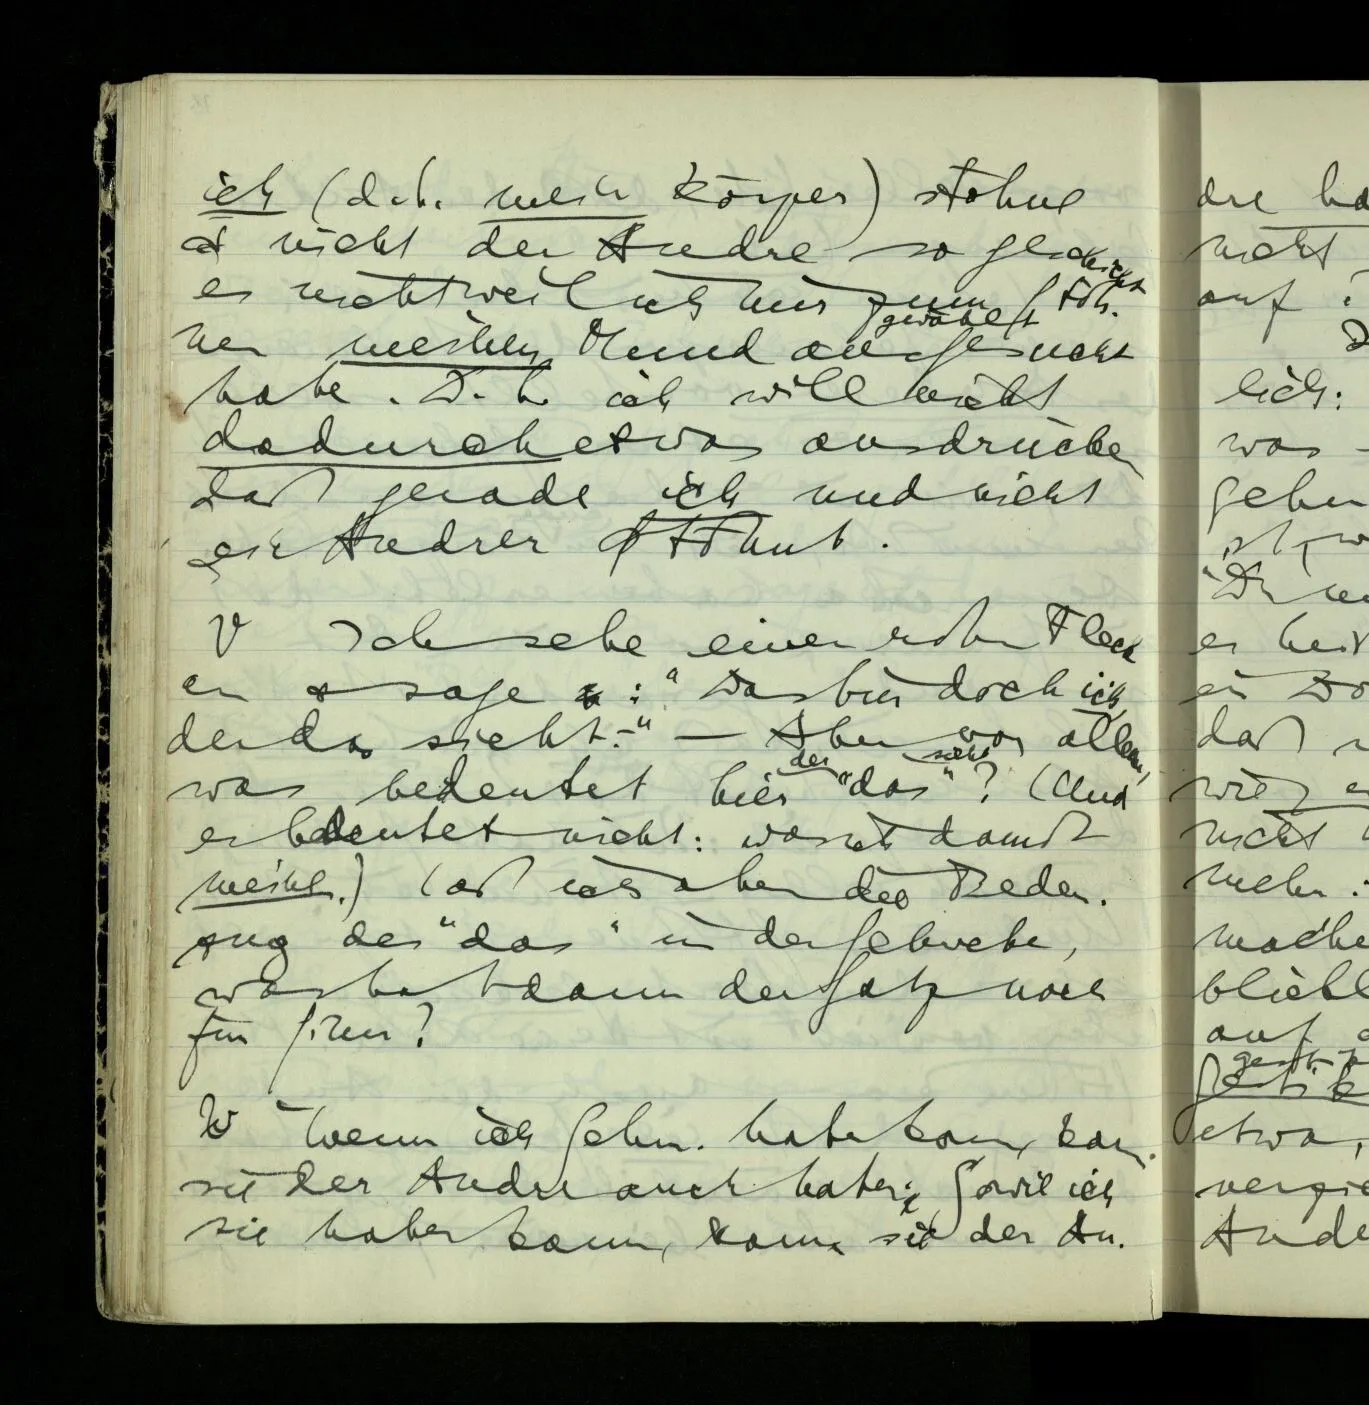 ich (d.h. mein Körper) stöhne
& nicht der Andre so geschieht
es nicht weil ich mir zum Stöh-
gewählt
nen meinen Mund ausgesucht
habe. D.h. ich will nicht
dadurch etwas ausdrücken
daß gerade ich und nicht
ein Andrer stöhnt.
V Ich sehe einen roten Fleck
en & sage : "Das bin doch ich,
der das sieht.-" — Aber vor allem,
der sieht
was bedeutet hier "das"? (Und
es bedeutet nicht: was ich damit
meine.) Laß ich aber den Bedeu-
zug des "das" in der Schwebe,
was hat dann der Satz noch
für Sinn?
W Wenn ich Schm. haben kann, kan-
sie der Andre auch haben; Sowie ich
sie haben kann, kann sie der An-
dre ha
nicht
auf
lich:
was
gehn
er
daß
nicht
mehr
mache
auf
etwa,
Ande